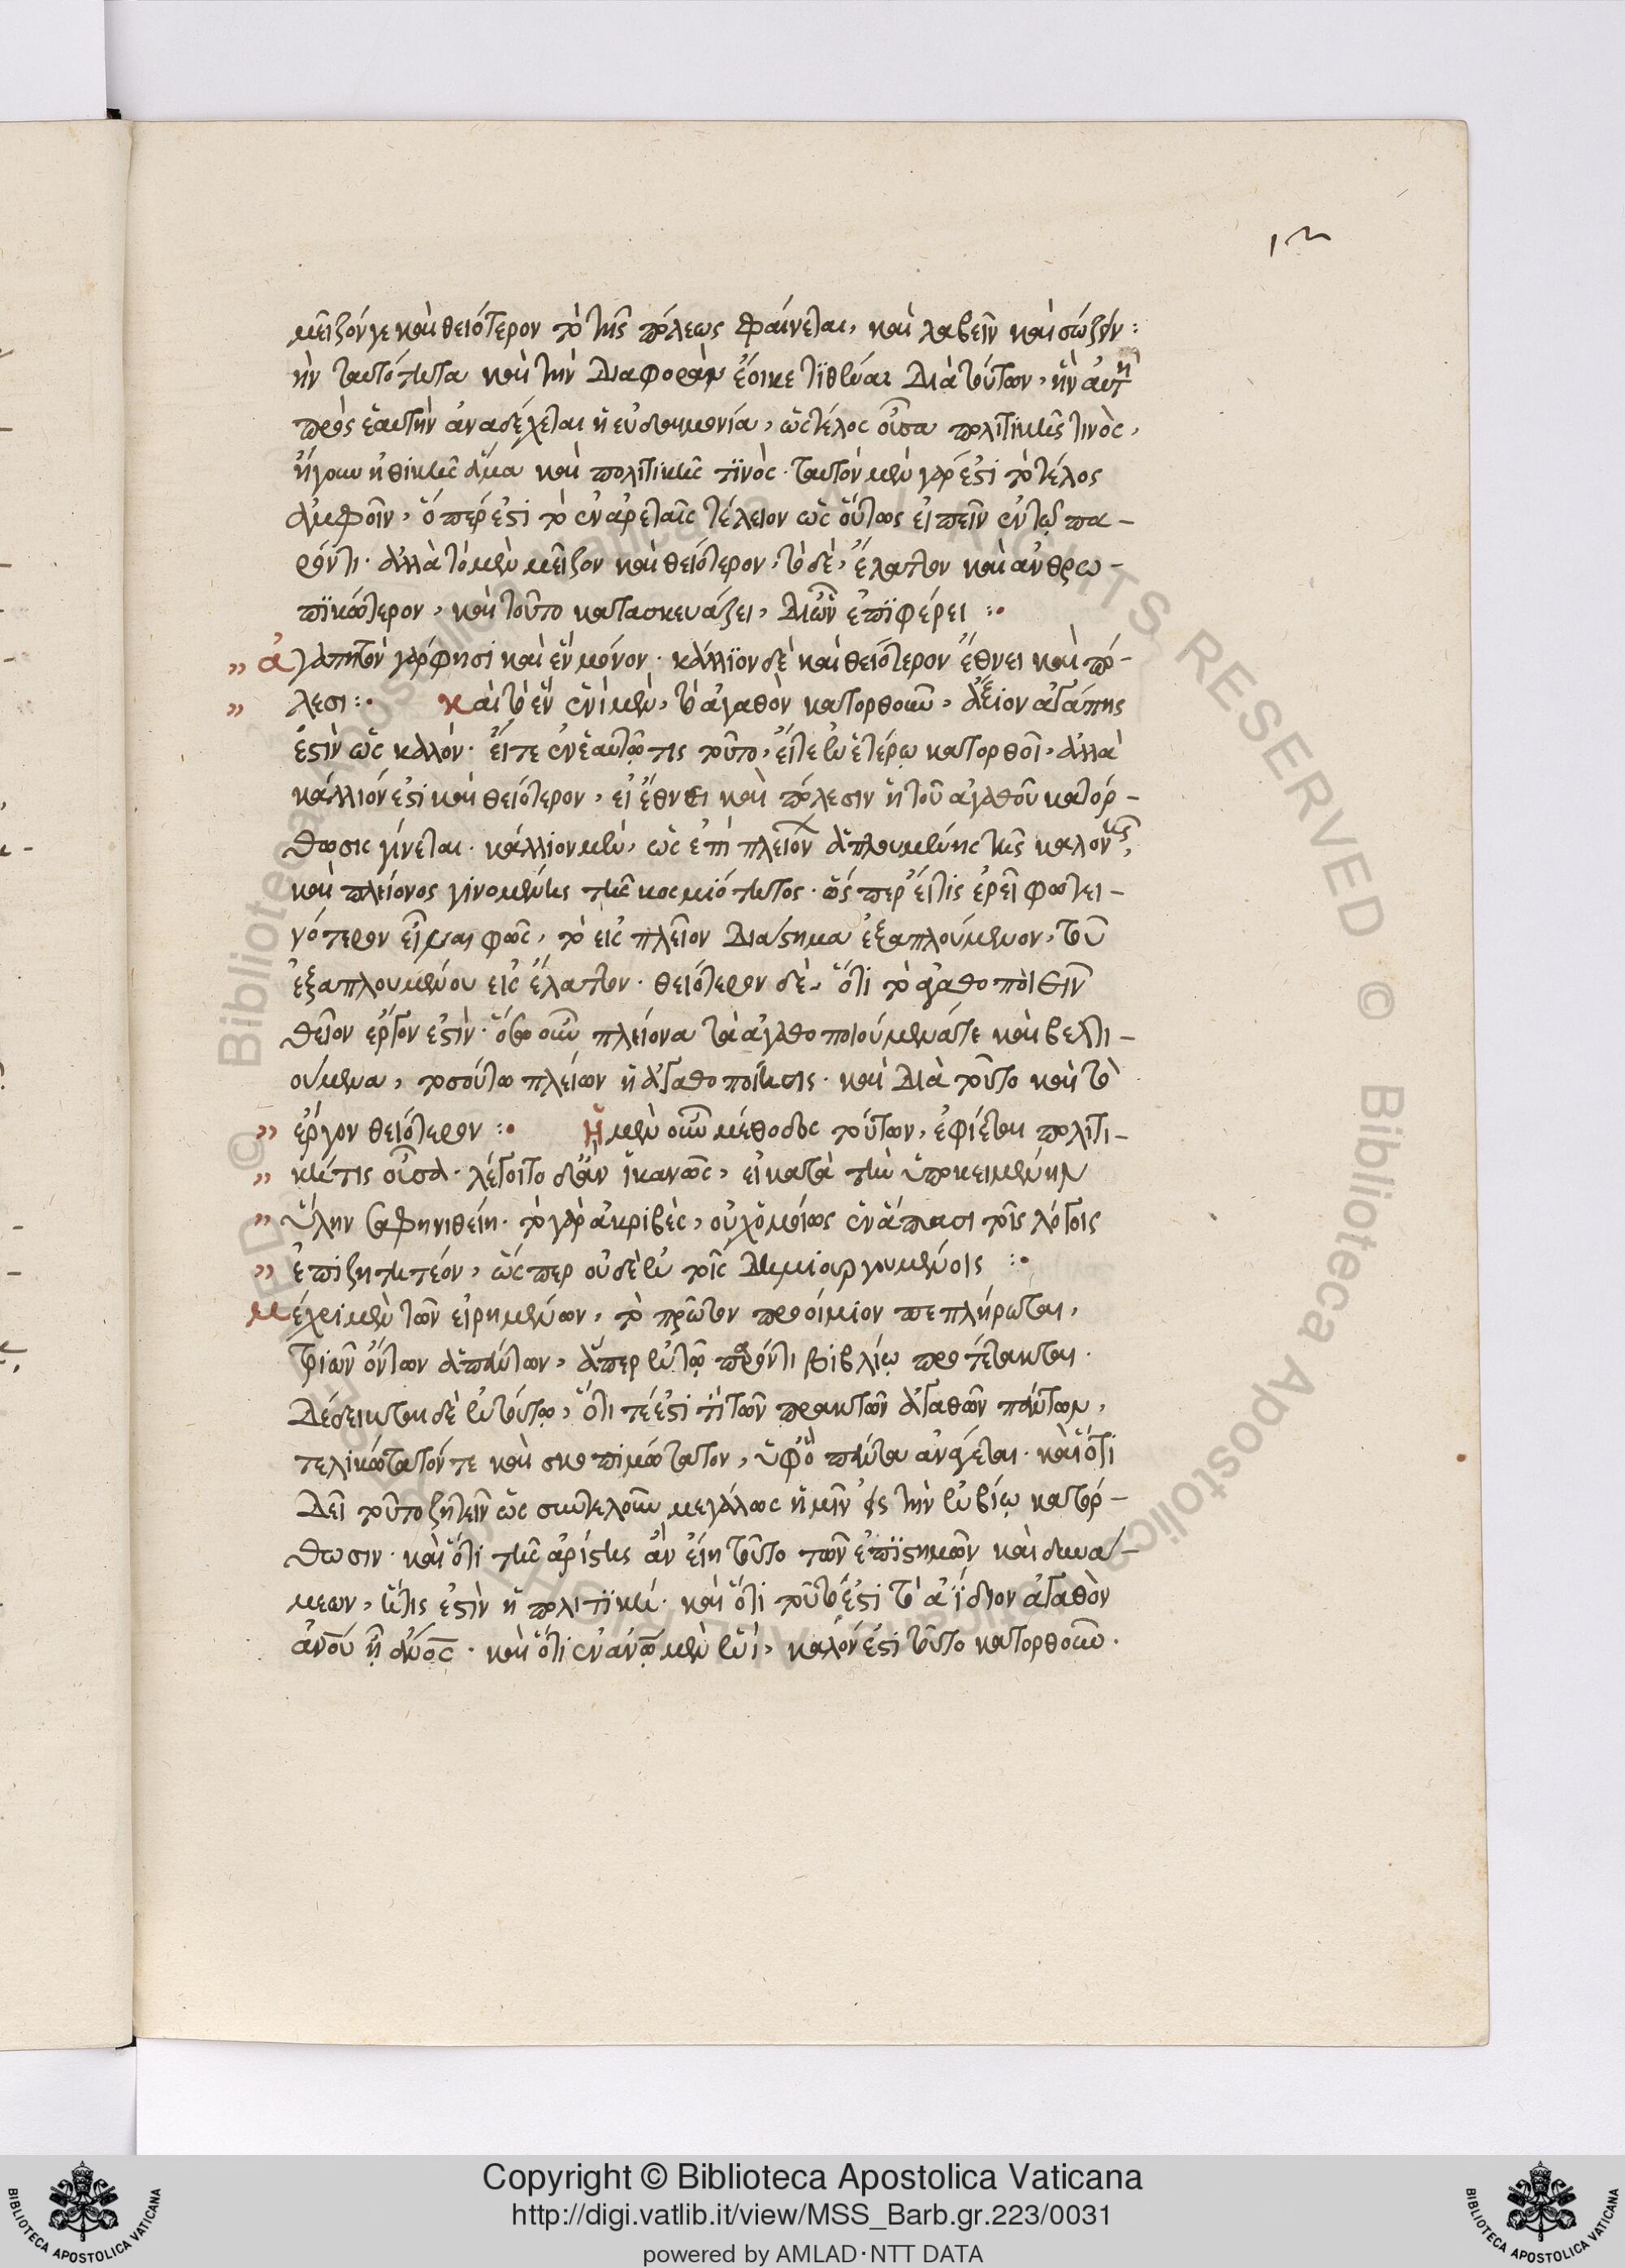 12
μεῖζόν γε καὶ θειότερον τὸ τῆς πόλεως φαίνεται, καὶ λαβεῖν καὶ σώζειν:
ἣν ταυτότητα καὶ τὴν διαφορὰν ἔοικε τϊθέναι διὰ τούτων, ἣν αὐτὴ
πρὸς ἑαυτὴν ἀναδέχεται ἡ εὐδαιμονία, ὡς τέλος οὖσα πολιτικῆς τινὸς,
ἤγουν ἠθικῆς ἅμα καὶ πολιτικῆς τϊνὸς · ταυτὸν μὲν γάρ ἐστι τὸ τέλος
ἀμφοῖν, ὅπερ ἐστὶ τὸ ἐν ἀρεταῖς τέλειον ὡς οὕτως εἰπεῖν ἐν τῷ πα-
ρόντι · ἀλλὰ τὸ μὲν μεῖζον καὶ θειότερον, τὸ δὲ, ἔλαττον καὶ ἀνθρω-
πϊκώτερον, καὶ τοῦτο κατασκευάζει, δι ὧν ἐπϊφέρει :·
" ἀγαπητὸν γάρ φησι καὶ ἑνὶ μόνον · κάλλϊον δὲ καὶ θειότερον ἔθνει καὶ πό-
" λεσι :· καὶ τὸ ἓν ἑνὶ μὲν, τὸ ἀγαθὸν κατορθοῦν, ἄξιον ἀγάπης
ἐστὶν ὡς καλόν · εἴτε ἐν ἑαυτῷ τις τοῦτο, εἴτε ἐν ἑτέρῳ κατορθοῖ, ἀλλὰ
κάλλιόν ἐστι καὶ θειότερον, εἰ ἔθνει καὶ πόλεσιν ἡ τοῦ ἀγαθοῦ κατόρ-
θωσις γίνεται · κάλλιον μὲν, ὡς ἐπὶ πλεῖον ἁπλουμένης τῆς καλονῆς,
καὶ πλείονος γινομένης τῆς κοσμιότητος · ὥσπερ εἴτις ἐρεῖ φωτει-
νότερον εἶναι φῶς, τὸ εἰς πλεῖον διάστημα ἐξαπλούμενον, τοῦ
ἐξαπλουμένου εἰς ἔλαττον · θειότερον δὲ, ὅτι τὸ ἀγαθοποιεῖν
θεῖον ἔργον ἐστὶν · ὅσῳ οὖν πλείονα τὰ ἀγαθοποιούμενά τε καὶ βελτι-
ούμενα, τοσούτῳ πλείων ἡ ἀγαθοποίησις · καὶ διὰ τοῦτο καὶ τὸ
" ἔργον θειότερον :· Ἡ μὲν οὖν μέθοδος τούτων, ἐφίεται πολιτι-
" κή τις οὖσα · λέγοιτο δ ἂν ἱκανῶς, εἰ κατὰ τὴν ὑποκειμένην
" ὕλην σαφηνισθείη · τὸ γὰρ ἀκριβὲς, οὐχ ὁμοίως ἐν ἅπασι τοῖς λόγοις
" ἐπιζητητέον, ὥσπερ οὐδὲ ἐν τοῖς δημιουργουμένοις :·
Μέχρι μὲν τῶν εἰρημένων, τὸ πρῶτον προοίμιον πεπλήρωται,
τριῶν ὄντων ἁπάντων, ἅπερ ἐν τῷ παρόντι βιβλίῳ προτέτακται ·
Δέδεικται δὲ ἐν τούτῳ, ὅτι τέ ἐστί τϊ τῶν πρακτῶν ἀγαθῶν πάντων,
τελικώτατόν τε καὶ σκοπιμώτατον, ὑφ ὃ πάντα ἀνάγεται · καὶ ὅτι
δεῖ τοῦτο ζητεῖν ὡς συντελοῦν μεγάλως ἡμῖν εἰς τὴν ἐν βίῳ κατόρ-
θωσιν · καὶ ὅτι τῆς ἀρίστης ἂν εἴη τοῦτο τῶν ἐπϊστημῶν καὶ δυνά-
μεων, ἥτις ἐστὶν ἡ πολιτϊκή · καὶ ὅτι τοῦτό ἐστι τὸ ἀΐδιον ἀγαθὸν
ἀνου ᾗ ανος · καὶ ὅτι ἐν ανω μὲν ἑνὶ, καλόν ἐστι τοῦτο κατορθοῦν ·
Copyright © Biblioteca Apostolica Vaticana
http://digi.vatlib.it/view/MSS_Barb.gr.223/0031
powered by AMLAD·NTT DATA